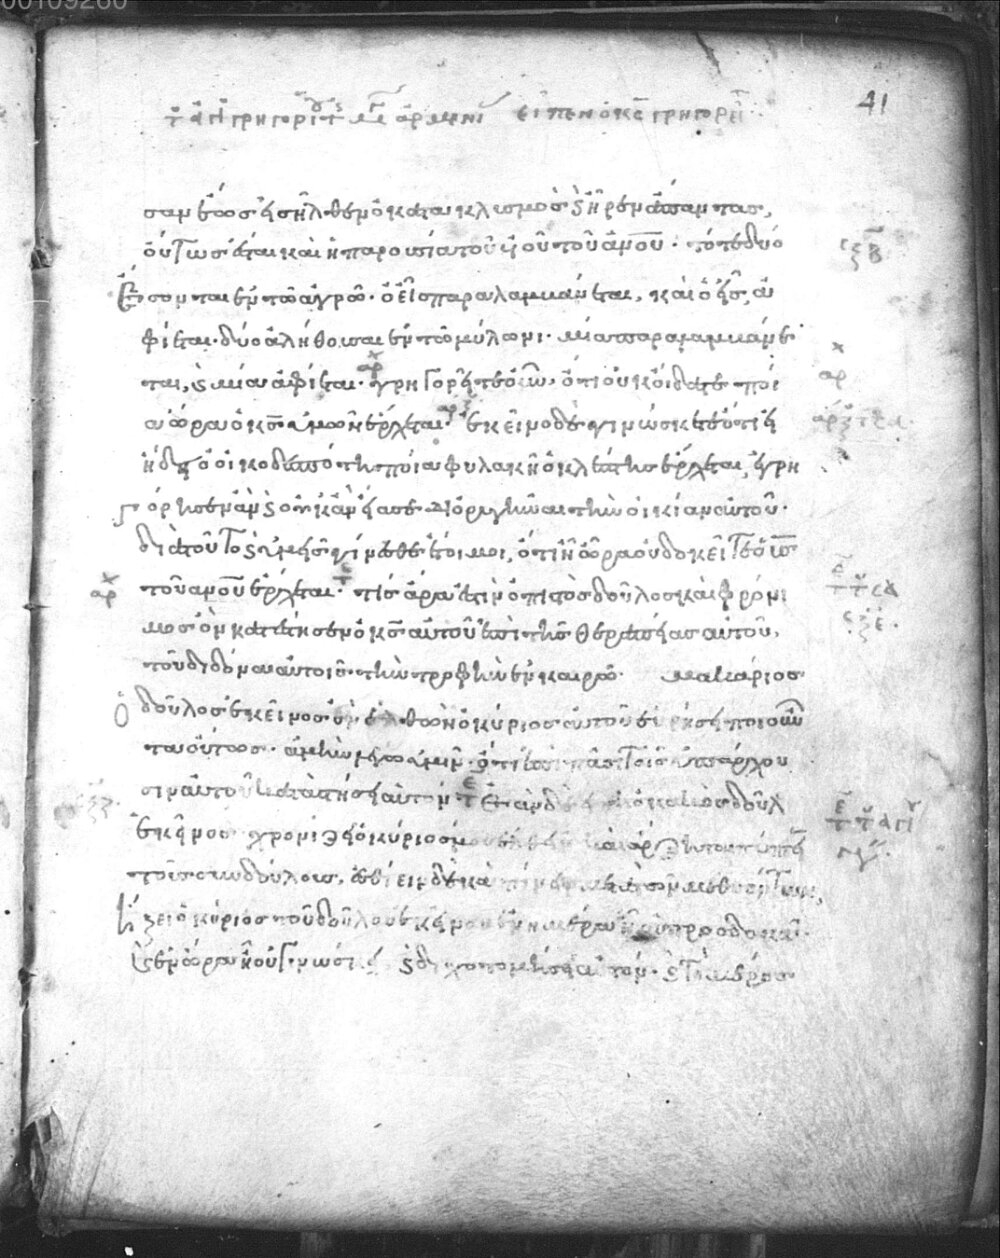 00109260
41
τ ἁγι γρηγορι τ μ αρμενι ειπεν ο κς γρηγορει
σαν ἕως ἦλθεν ὁ κατακλυσμὸς ϗ ἦρεν ἅπαντας,
οὕτως ἔσται καὶ ἡ παρουσία τοῦ υυ τοῦ ἀνου. τότε δύο
ἔσονται ἐν τῶ ἀγρῶ. ὁ εἷς παραλαμβάνεται, καὶ ὁ εἷς ἀ
φίεται. δύο ἀλήθουσαι ἐν τῶ μύλωνι. μία παραλαμβάνε
ται, ϗ μία ἀφίεται. γρηγορεῖτε οὖν, ὅτι οὐκ οἴδατε ποί
α ὥρα ὁ κς ὑμῶν ἔρχεται. ἐκεῖνο δὲ γινώσκετε ὅτι εἰ
ἤδει ὁ οἰκοδεσπότης ποία φυλακῆ ὁ κλέπτης ἔρχεται, ἐγρη
γόρησεν ἂν ϗ οὐκ ἂν εἴασε διορυγῆναι τὴν οἰκίαν αὐτοῦ.
διατοῦτο ϗ ὑμεῖς γίνεσθε ἕτοιμοι, ὅτι ἧ ὥρα οὐ δοκεῖτε ὁ υς
τοῦ ανου ἔρχεται. τίς ἄρα ἐστὶν ὁ πιστὸς δοῦλος καὶ φρόνι
μος ὃν κατέστησεν ὁ κς αὐτοῦ ἐπὶ τῆς θεραπείας αὐτοῦ,
τοῦ διδόναι αὐτοῖς τὴν τροφὴν ἐν καιρῶ. μακάριος
ὁ
δοῦλος ἐκεῖνος ὃν ἐλθὼν ὁ κύριος αὐτοῦ εὑρήσει ποιοῦν
τα οὕτως. ἀμὴν λέγω ὑμῖν ὅτι ἐπὶ πᾶσι τοῖς ὑπάρχου
σιν αὐτοῦ καταστήσει αὐτόν. ἐὰν δὲ ὁ κακὸς δοῦλ
ἐκεῖνος χρονίζει ὁ κύριός μου ἐλθεῖν καὶ ἄρξηται τύπτει
τοὺς συνδούλους, ἐσθίειν δὲ καὶ πίνειν μετὰ τῶν μεθυόντων,
ἥξει ὁ κύριος τοῦ δούλου ἐκείνου ἐν ἡμέρα ἧ οὐ προσδοκᾶ.
ϗ ἐν ὥρα ἧ οὐ γινώσκει ϗ διχοτομήσει αὐτόν. ϗ τὸ μέρος